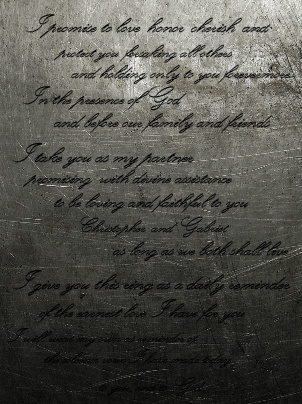 I promise to love honor cherish and
protect you forsaking all others
and holding only to you forevermore
In the presence of God
and before our family and friends
I take you as my partner
promising with divine assistance
to be loving and faithful to you
Christopher and Gabriel
as long as we both shall live
I give you this ring as a daily reminder
of the earnest love I have for you
I will wear my own as reminder of
the solemn vows I have made today
God